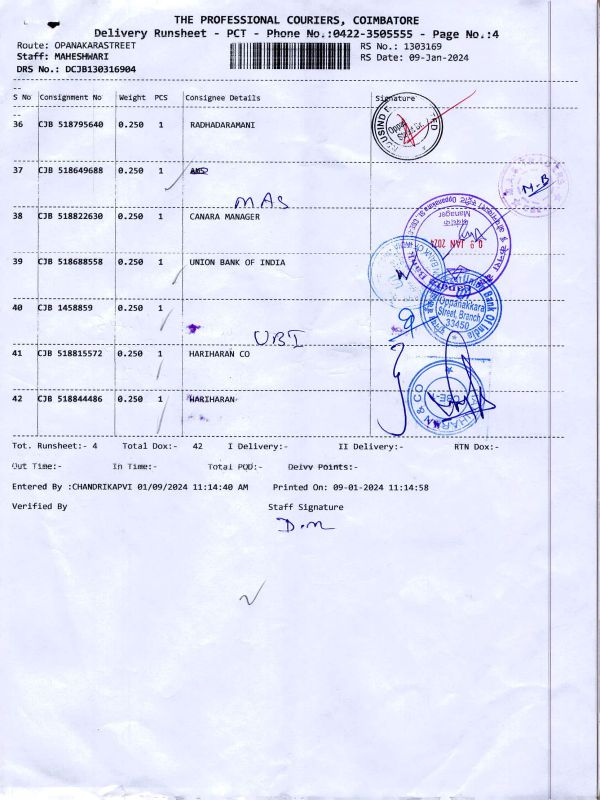 THE PROFESSIONAL COURIERS, COIMBATORE
Delivery Runsheet - PCT - Phone No.:0422-3505555 - Page No.:4
Route: OPANAKARASTREET RS No.: 1303169
Staff: MAHESHWARI RS Date: 09-Jan-2024
DRS No.: DCJB130316904
S No Consignment No Weight PCS Consignee Details Signature
36 CJB 518795640 0.250 1 RADHADARAMANI
37 CJB 518649688 0.250 1
MAS
M-B
38 CJB 518822630 0.250 1 CANARA MANAGER
Manager
09 JAN 2024
39 CJB 518688558 0.250 1 UNION BANK OF INDIA
Union Bank Of India
Oppanakkara
Street, Branch
33450
40 CJB 1458859 0.250 1
UBI
41 CJB 518815572 0.250 1 HARIHARAN CO
42 CJB 518844486 0.250 1 HARIHARAN
HARIHARAN & CO
Tot. Runsheet:- 4 Total Dox:- 42 I Delivery:- II Delivery:- RTN Dox:-
Out Time:- In Time:- Total POD:- Delvv Points:-
Entered By :CHANDRIKAPVI 01/09/2024 11:14:40 AM Printed On: 09-01-2024 11:14:58
Verified By Staff Signature
D.m